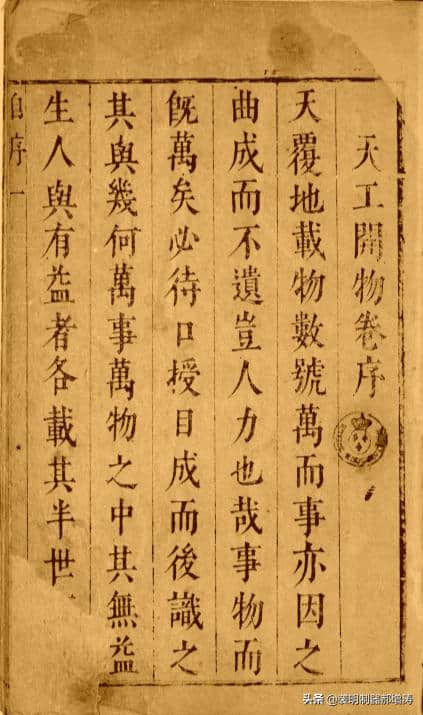 天工開物卷序
天覆地載物數號萬而事亦因之
曲成而不遺豈人力也哉事物而
既萬矣必待口授目成而後識之
其與幾何萬事萬物之中其無益
生人與有益者各載其半世
序一
头条